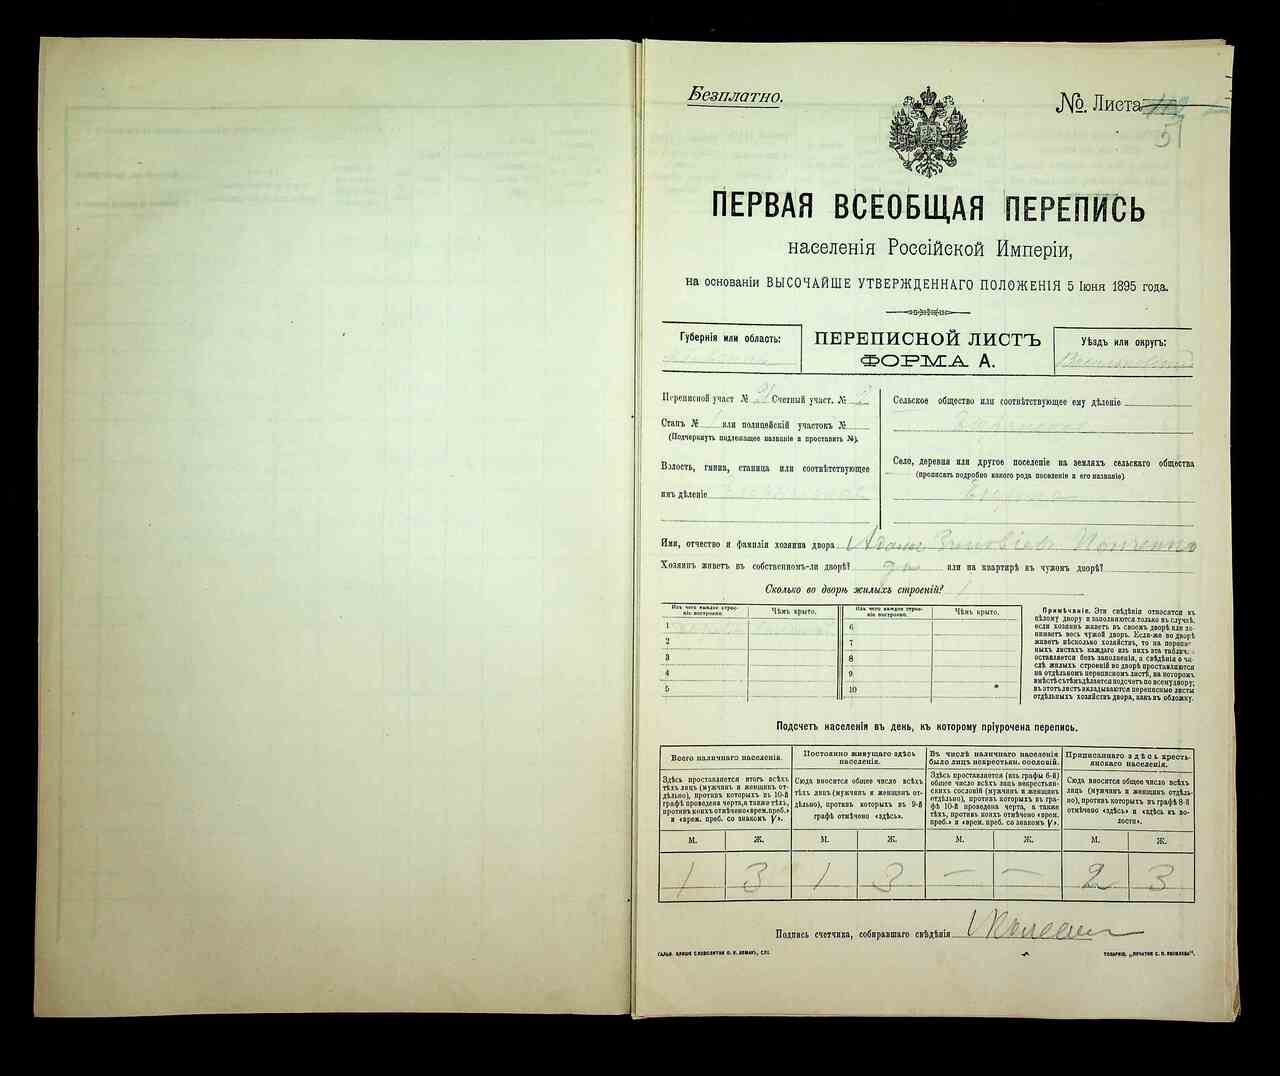 Безплатно.
№. Листа
51
ПЕРВАЯ ВСЕОБЩАЯ ПЕРЕПИСЬ
населенія Россійской Имперіи,
на основаніи ВЫСОЧАЙШЕ УТВЕРЖДЕННАГО ПОЛОЖЕНІЯ 5 Іюня 1895 года.
Губернія или область:
ПЕРЕПИСНОЙ ЛИСТЪ
ФОРМА А.
Уѣздъ или округъ:
Переписной участ № Счетный участ. № 2
Станъ № или полицейскій участокъ №
(Подчеркнуть подлежащее названіе и проставить №).
Волость, гмина, станица или соотвѣтствующее
имъ дѣленіе
Сельское общество или соотвѣтствующее ему дѣленіе
Село, деревня или другое поселеніе на земляхъ сельскаго общества
(прописать подробно какого рода поселеніе и его названіе)
Имя, отчество и фамилія хозяина двора Адамъ Зиновіевъ
Хозяинъ живетъ въ собственномъ-ли дворѣ? да или на квартирѣ къ чужомъ дворѣ?
Сколько во дворѣ жилыхъ строеній? 1
Изъ чего каждое строеніе построено. Чѣмъ крыто. Изъ чего каждое строеніе построено. Чѣмъ крыто.
1 6
2 7
3 8
4 9
5 10
Примѣчаніе. Эти свѣдѣнія относятся къ
цѣлому двору и заполняются только въ случаѣ,
если хозяинъ живетъ въ своемъ дворѣ или занимаетъ
весь чужой дворъ. Если-же во дворѣ
живетъ нѣсколько хозяйствъ, то на переписныхъ
листахъ каждаго изъ нихъ эта таблич.
оставляется безъ заполненія, а свѣдѣнія о числѣ
жилыхъ строеній во дворѣ проставляются
на отдѣльномъ переписномъ листѣ, на которомъ
вмѣстѣ съ тѣмъ дѣлается подсчетъ по всему двору;
въ этотъ листъ вкладываются переписные листы
отдѣльныхъ хозяйствъ двора, какъ въ обложку.
Подсчетъ населенія въ день, къ которому пріурочена перепись.
Всего наличнаго населенія.
Здѣсь проставляется итогъ всѣхъ
тѣхъ лицъ (мужчинъ и женщинъ отдѣльно),
противъ которыхъ въ 10-й
графѣ проведена черта, а также тѣхъ,
противъ коихъ отмѣчено «врем. преб.»
и «врем. преб. со знакомъ V».
Постоянно живущаго здѣсь
населенія.
Сюда вносится общее число всѣхъ
тѣхъ лицъ (мужчинъ и женщинъ отдѣльно),
противъ которыхъ въ 9-й
графѣ отмѣчено «здѣсь».
Въ числѣ наличнаго населенія
было лицъ некрестьян. сословій.
Здѣсь проставляется (изъ графы 6-й)
общее число всѣхъ лицъ некрестьянскихъ
сословій (мужчинъ и женщинъ
отдѣльно), противъ которыхъ въ графѣ
10-й проведена черта, а также
тѣхъ, противъ коихъ отмѣчено «врем.
преб.» и «врем. преб. со знакомъ V».
Приписаннаго здѣсь крестьянскаго
населенія.
Сюда вносится общее число всѣхъ
лицъ (мужчинъ и женщинъ отдѣльно),
противъ которыхъ въ графѣ 8-й
отмѣчено «здѣсь» и «здѣсь къ волости».
М. Ж. М. Ж. М. Ж. М. Ж.
1 3 1 3 — — 2 3
Подпись счетчика, собиравшаго свѣдѣнія